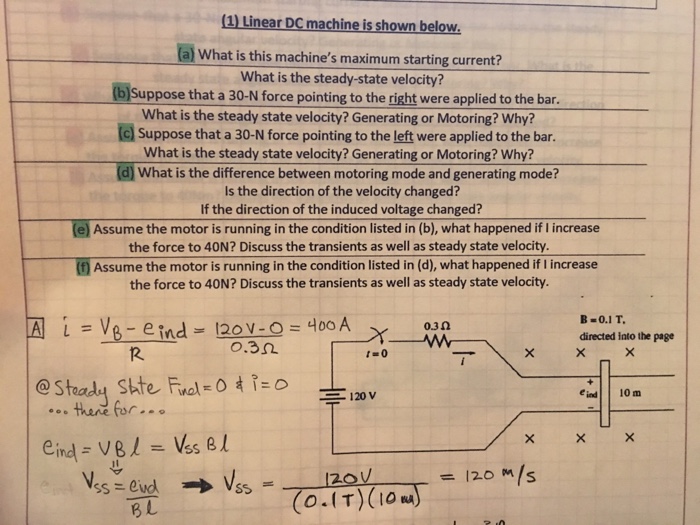 (1) Linear DC machine is shown below.
(a) What is this machine's maximum starting current?
What is the steady-state velocity?
(b) Suppose that a 30-N force pointing to the right were applied to the bar.
What is the steady state velocity? Generating or Motoring? Why?
(c) Suppose that a 30-N force pointing to the left were applied to the bar.
What is the steady state velocity? Generating or Motoring? Why?
(d) What is the difference between motoring mode and generating mode?
Is the direction of the velocity changed?
If the direction of the induced voltage changed?
(e) Assume the motor is running in the condition listed in (b), what happened if I increase
the force to 40N? Discuss the transients as well as steady state velocity.
(f) Assume the motor is running in the condition listed in (d), what happened if I increase
the force to 40N? Discuss the transients as well as steady state velocity.
A i = VB - eind / R = 120V - 0 / 0.3Ω = 400 A
@ Steady State Find = 0 & i = 0
... there for ...
eind = VBl = Vss Bl
⇓
Vss = eind / Bl → Vss = 120V / (0.1T)(10m) = 120 m/s
B = 0.1 T,
directed into the page
0.3 Ω
t=0
i
× × ×
120 V
+
eind
-
10 m
× × ×